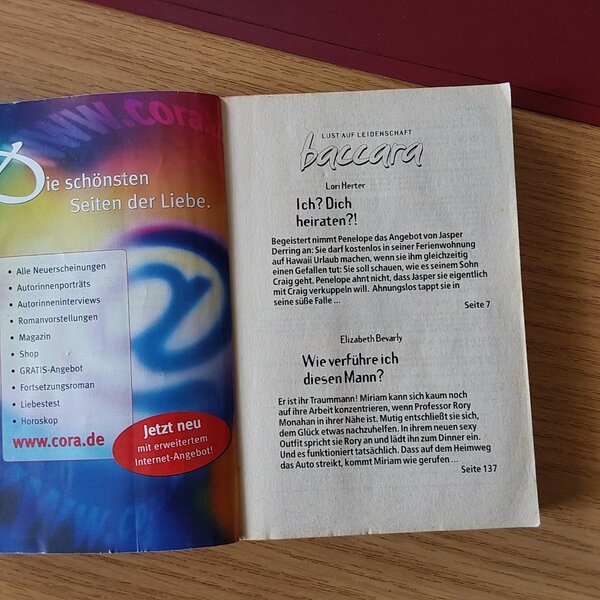 www.cora.d
Die schönsten
Seiten der Liebe.
• Alle Neuerscheinungen
• Autorinnenporträts
• Autorinneninterviews
• Romanvorstellungen
• Magazin
• Shop
• GRATIS-Angebot
• Fortsetzungsroman
• Liebestest
• Horoskop
www.cora.de
Jetzt neu
mit erweitertem
Internet-Angebot!
LUST AUF LEIDENSCHAFT
baccara
Lori Herter
Ich? Dich
heiraten?!
Begeistert nimmt Penelope das Angebot von Jasper
Derring an: Sie darf kostenlos in seiner Ferienwohnung
auf Hawaii Urlaub machen, wenn sie ihm gleichzeitig
einen Gefallen tut: Sie soll schauen, wie es seinem Sohn
Craig geht. Penelope ahnt nicht, dass Jasper sie eigentlich
mit Craig verkuppeln will. Ahnungslos tappt sie in
seine süße Falle ...
Seite 7
Elizabeth Bevarly
Wie verführe ich
diesen Mann?
Er ist ihr Traummann! Miriam kann sich kaum noch
auf ihre Arbeit konzentrieren, wenn Professor Rory
Monahan in ihrer Nähe ist. Mutig entschließt sie sich,
dem Glück etwas nachzuhelfen. In ihrem neuen sexy
Outfit spricht sie Rory an und lädt ihn zum Dinner ein.
Und es funktioniert tatsächlich. Dass auf dem Heimweg
das Auto streikt, kommt Miriam wie gerufen ...
Seite 137